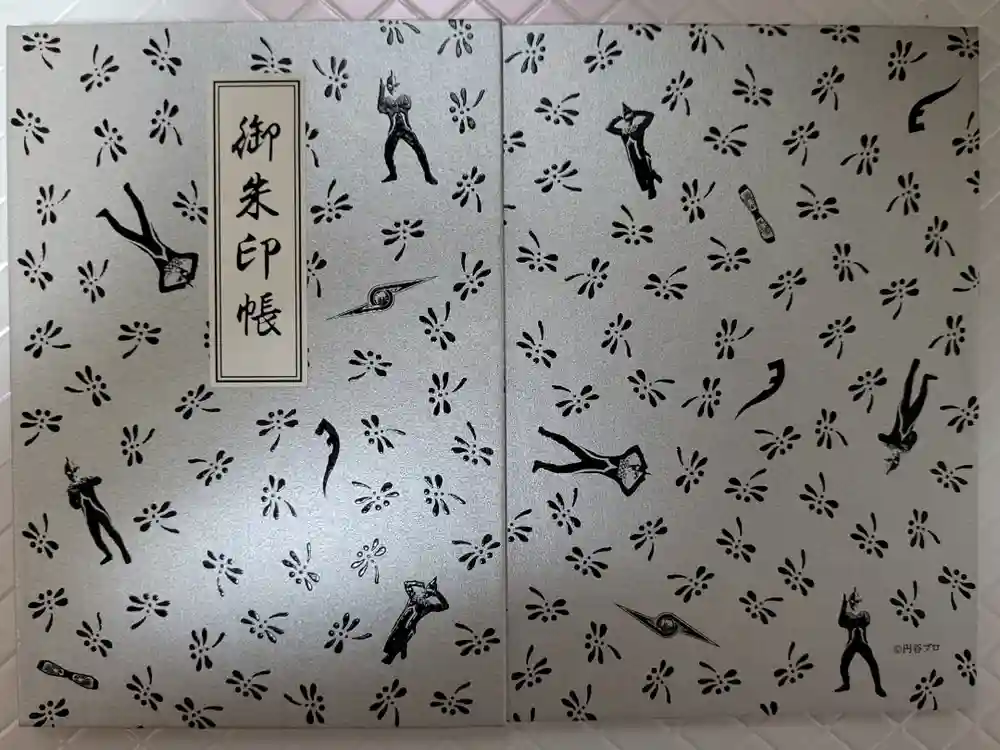 御朱印帳
©円谷プロ